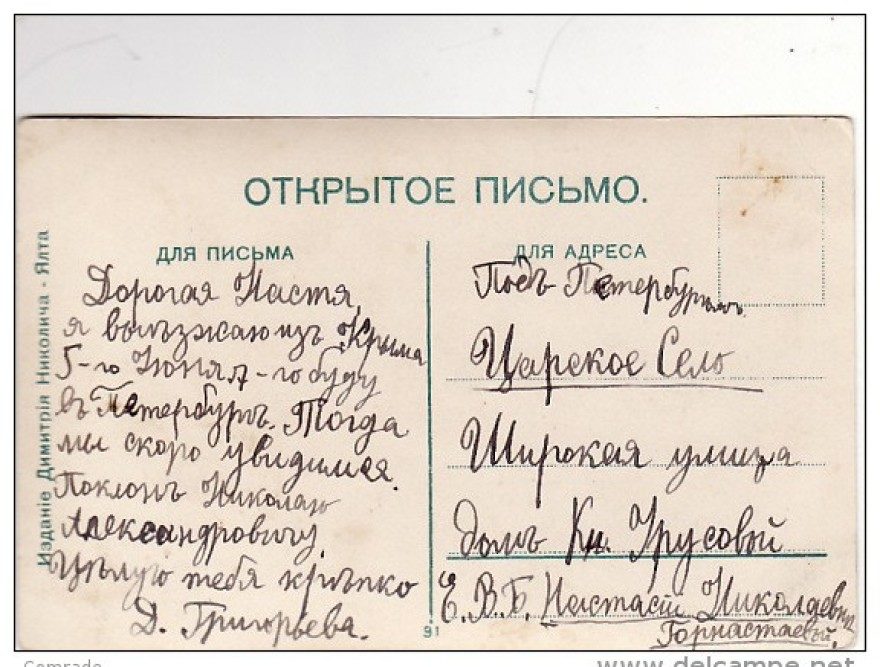 ОТКРЫТОЕ ПИСЬМО.
Изданіе Димитрія Николича - Ялта
ДЛЯ ПИСЬМА
Дорогая Настя,
я выѣзжаю изъ Крыма
5-го Іюня 7-го буду
въ Петербургѣ. Тогда
мы скоро увидимся.
Поклонъ Николаю
Александровичу.
Цѣлую тебя крѣпко
Д. Григорьева.
ДЛЯ АДРЕСА
Подъ Петербургомъ
Царское Село
Широкая улица
домъ Кн. Урусовой
Е. В. Б. Настасіи Николаевнѣ
Горностаевой.
91
Comrade
www.delcampe.net